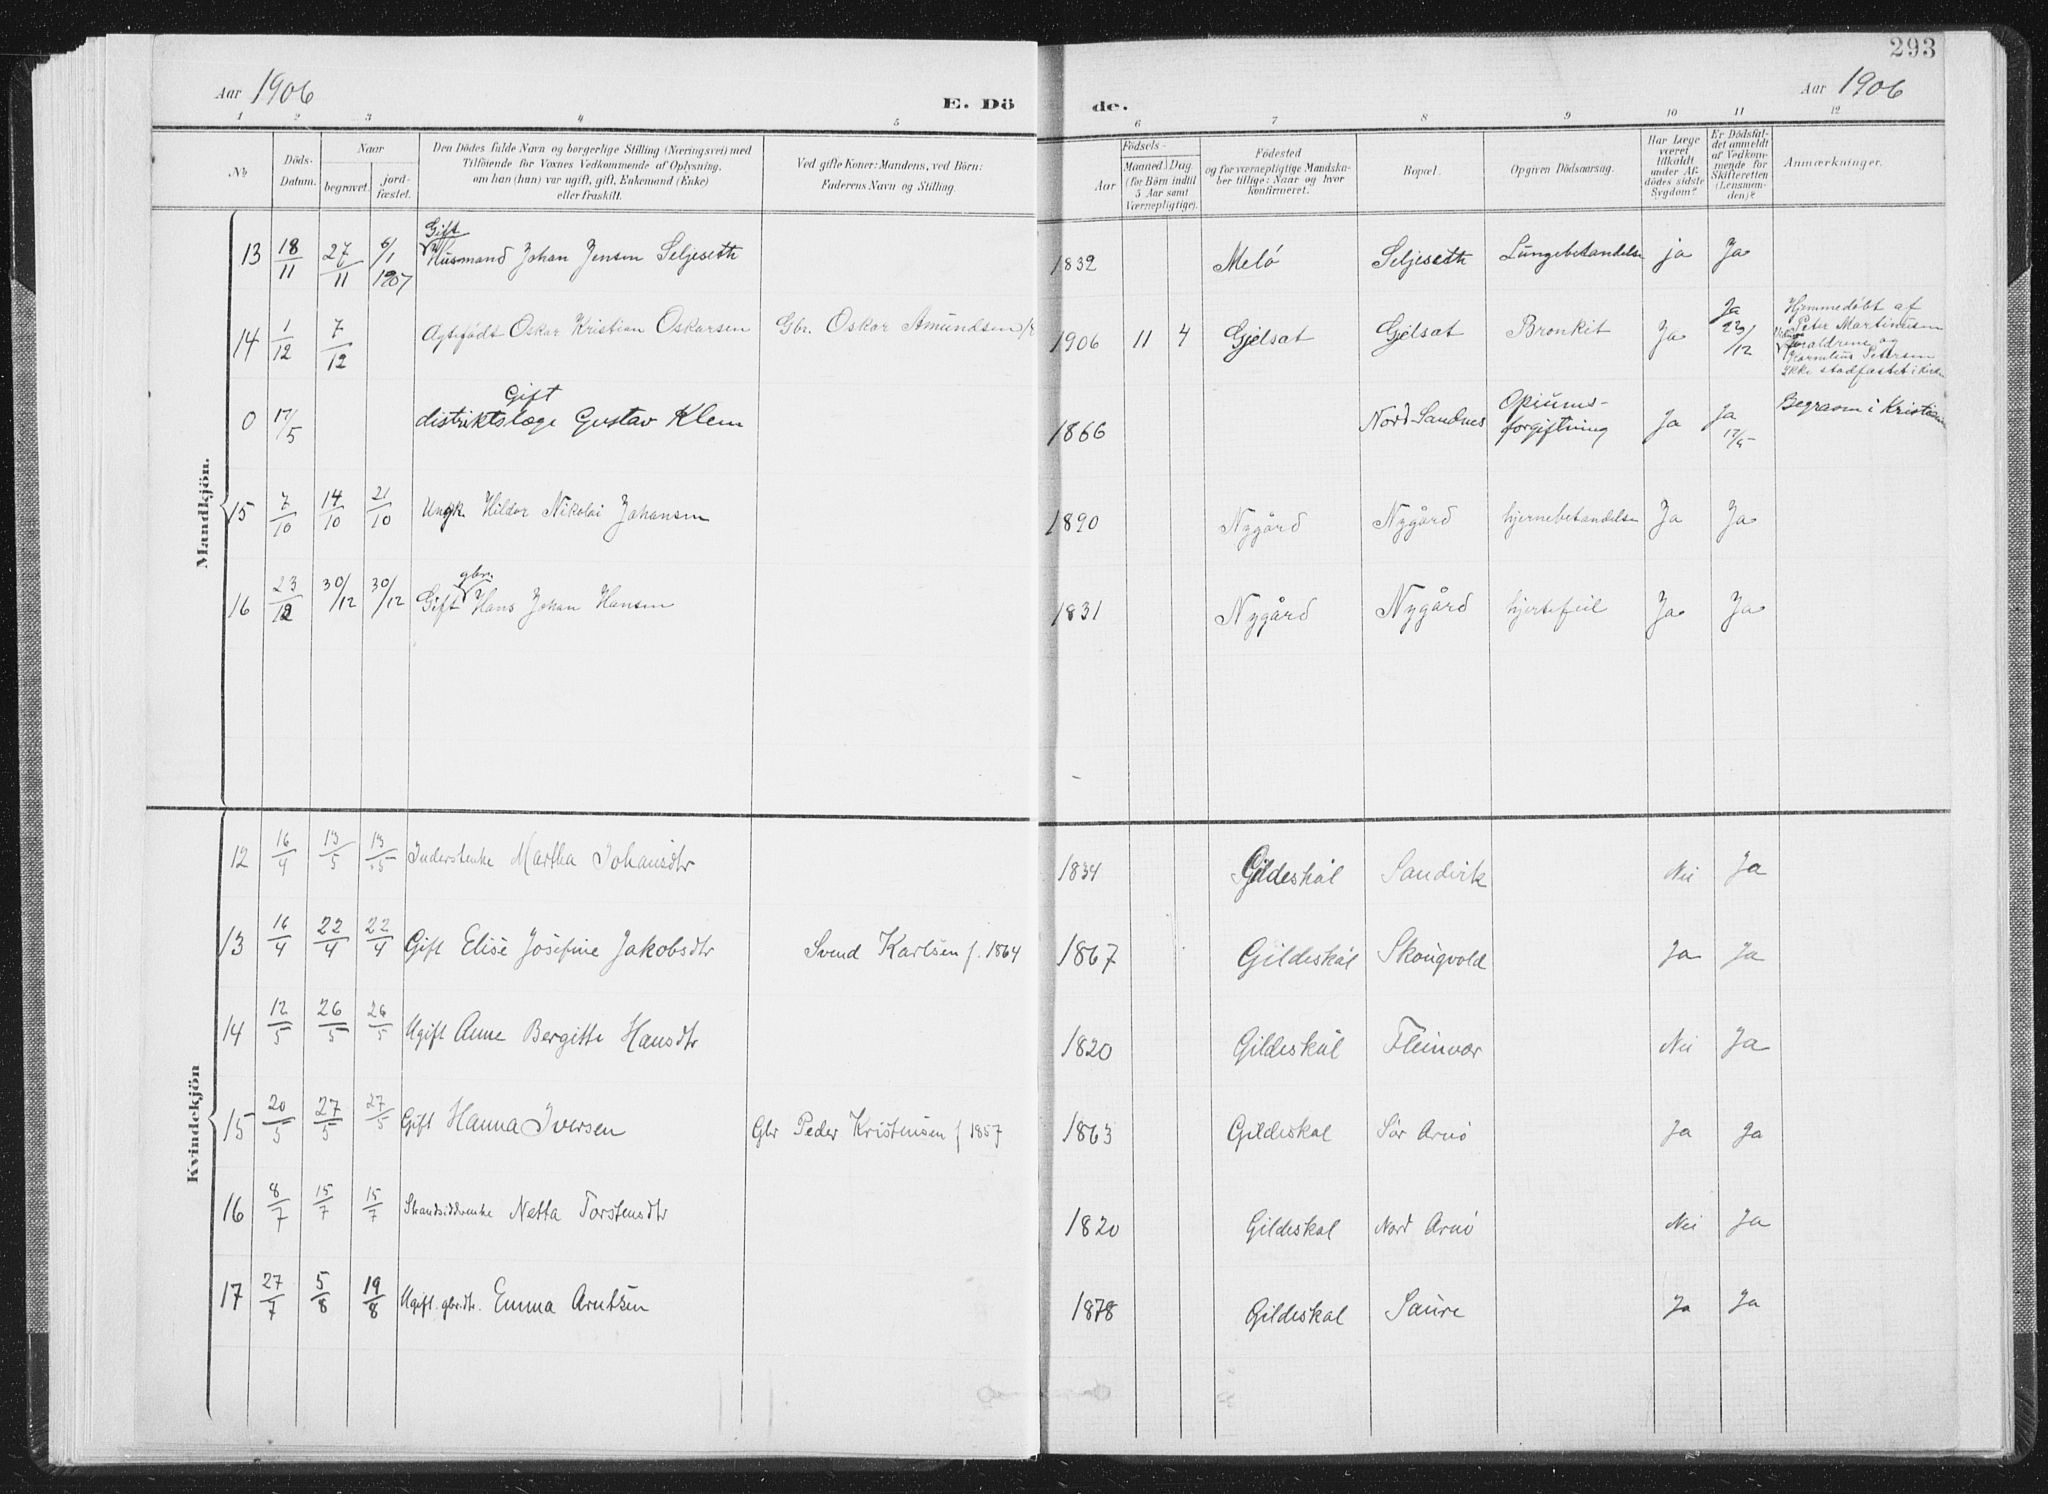 293
Aar 1906
E. Dö
de.
Aar 1906
1 2 3 4 5
6 7 8 9 10 11 12
No
Döds-Datum.
Naar
begravet.
jord-fæstet.
Den Dödes fulde Navn og borgerlige Stilling (Næringsvei) med
Tilföiende for Voxnes Vedkommende af Oplysning,
om han (hun) var ugift, gift, Enkemand (Enke)
eller fraskilt.
Ved gifte Koner: Mandens, ved Börn:
Faderens Navn og Stilling.
Födsels-
Aar
Maaned
Dag
(for Börn indtil
5 Aar samt
Værnepligtige).
Födested
og for værnepligtige Mandska-
ber tillige: Naar og hvor
konfirmeret.
Bopæl.
Opgiven Dödsaarsag.
Har Læge
været
tilkaldt
under Af-
dödes sidste
Sygdom?
Er Dödsfal-
det anmeldt
af Vedkom-
mende for
Skifteretten
(Lensman-
den)?
Anmærkninger.
Mandkjön.
13 18/11 27/11 6/1 1907 Gift Husmand Johan Jensen Seljeseth 1832 Melö Seljeseth Lungebetændelse ja Ja
14 1/12 7/12 Ægtefödt Oskar Kristian Oskarsen Gbr. Oskar Amundsen 1906 11 4 Gjelsat Gjelsat Bronkit Ja Ja 22/12 Hjemmedöbt af
Peter Martinusen
forældrene og
Kornelius Petersen
Ikke stadfæstet i Kirken
0 17/5 Gift
distriktslæge Gustav Klem 1866 Nord-Sandnes Opiums-
forgiftning Ja Ja 17/5 Begraven i Kristiania
15 7/10 14/10 21/10 Ungk. Hildor Nikolai Johansen 1890 Nygård Nygård hjernebetændelse Ja Ja
16 23/12 30/12 30/12 Gift gbr. Hans Johan Hansen 1831 Nygård Nygård hjertefeil Ja Ja
Kvindekjön
12 16/4 13/5 13/5 Inderstenke Martha Johansdtr 1834 Gildeskål Sandvik Nei Ja
13 16/4 22/4 22/4 Gift Elise Josefine Jakobsdtr Svend Karlsen f. 1864 1867 Gildeskål Skougvold Ja Ja
14 12/5 26/5 26/5 Ugift Anne Bergitte Hansdtr 1820 Gildeskål Fleinvær Nei Ja
15 20/5 27/5 27/5 Gift Hanna Iversen Gbr Peder Kristensen f 1857 1863 Gildeskal Sör Arnö Ja Ja
16 8/7 15/7 15/7 Strandsidderenke Netta Torstensdtr 1820 Gildeskal Nord Arnö Nei Ja
17 27/7 5/8 19/8 Ugift. gbr.dtr. Emma Arntsen 1878 Gildeskal Saure Ja Ja